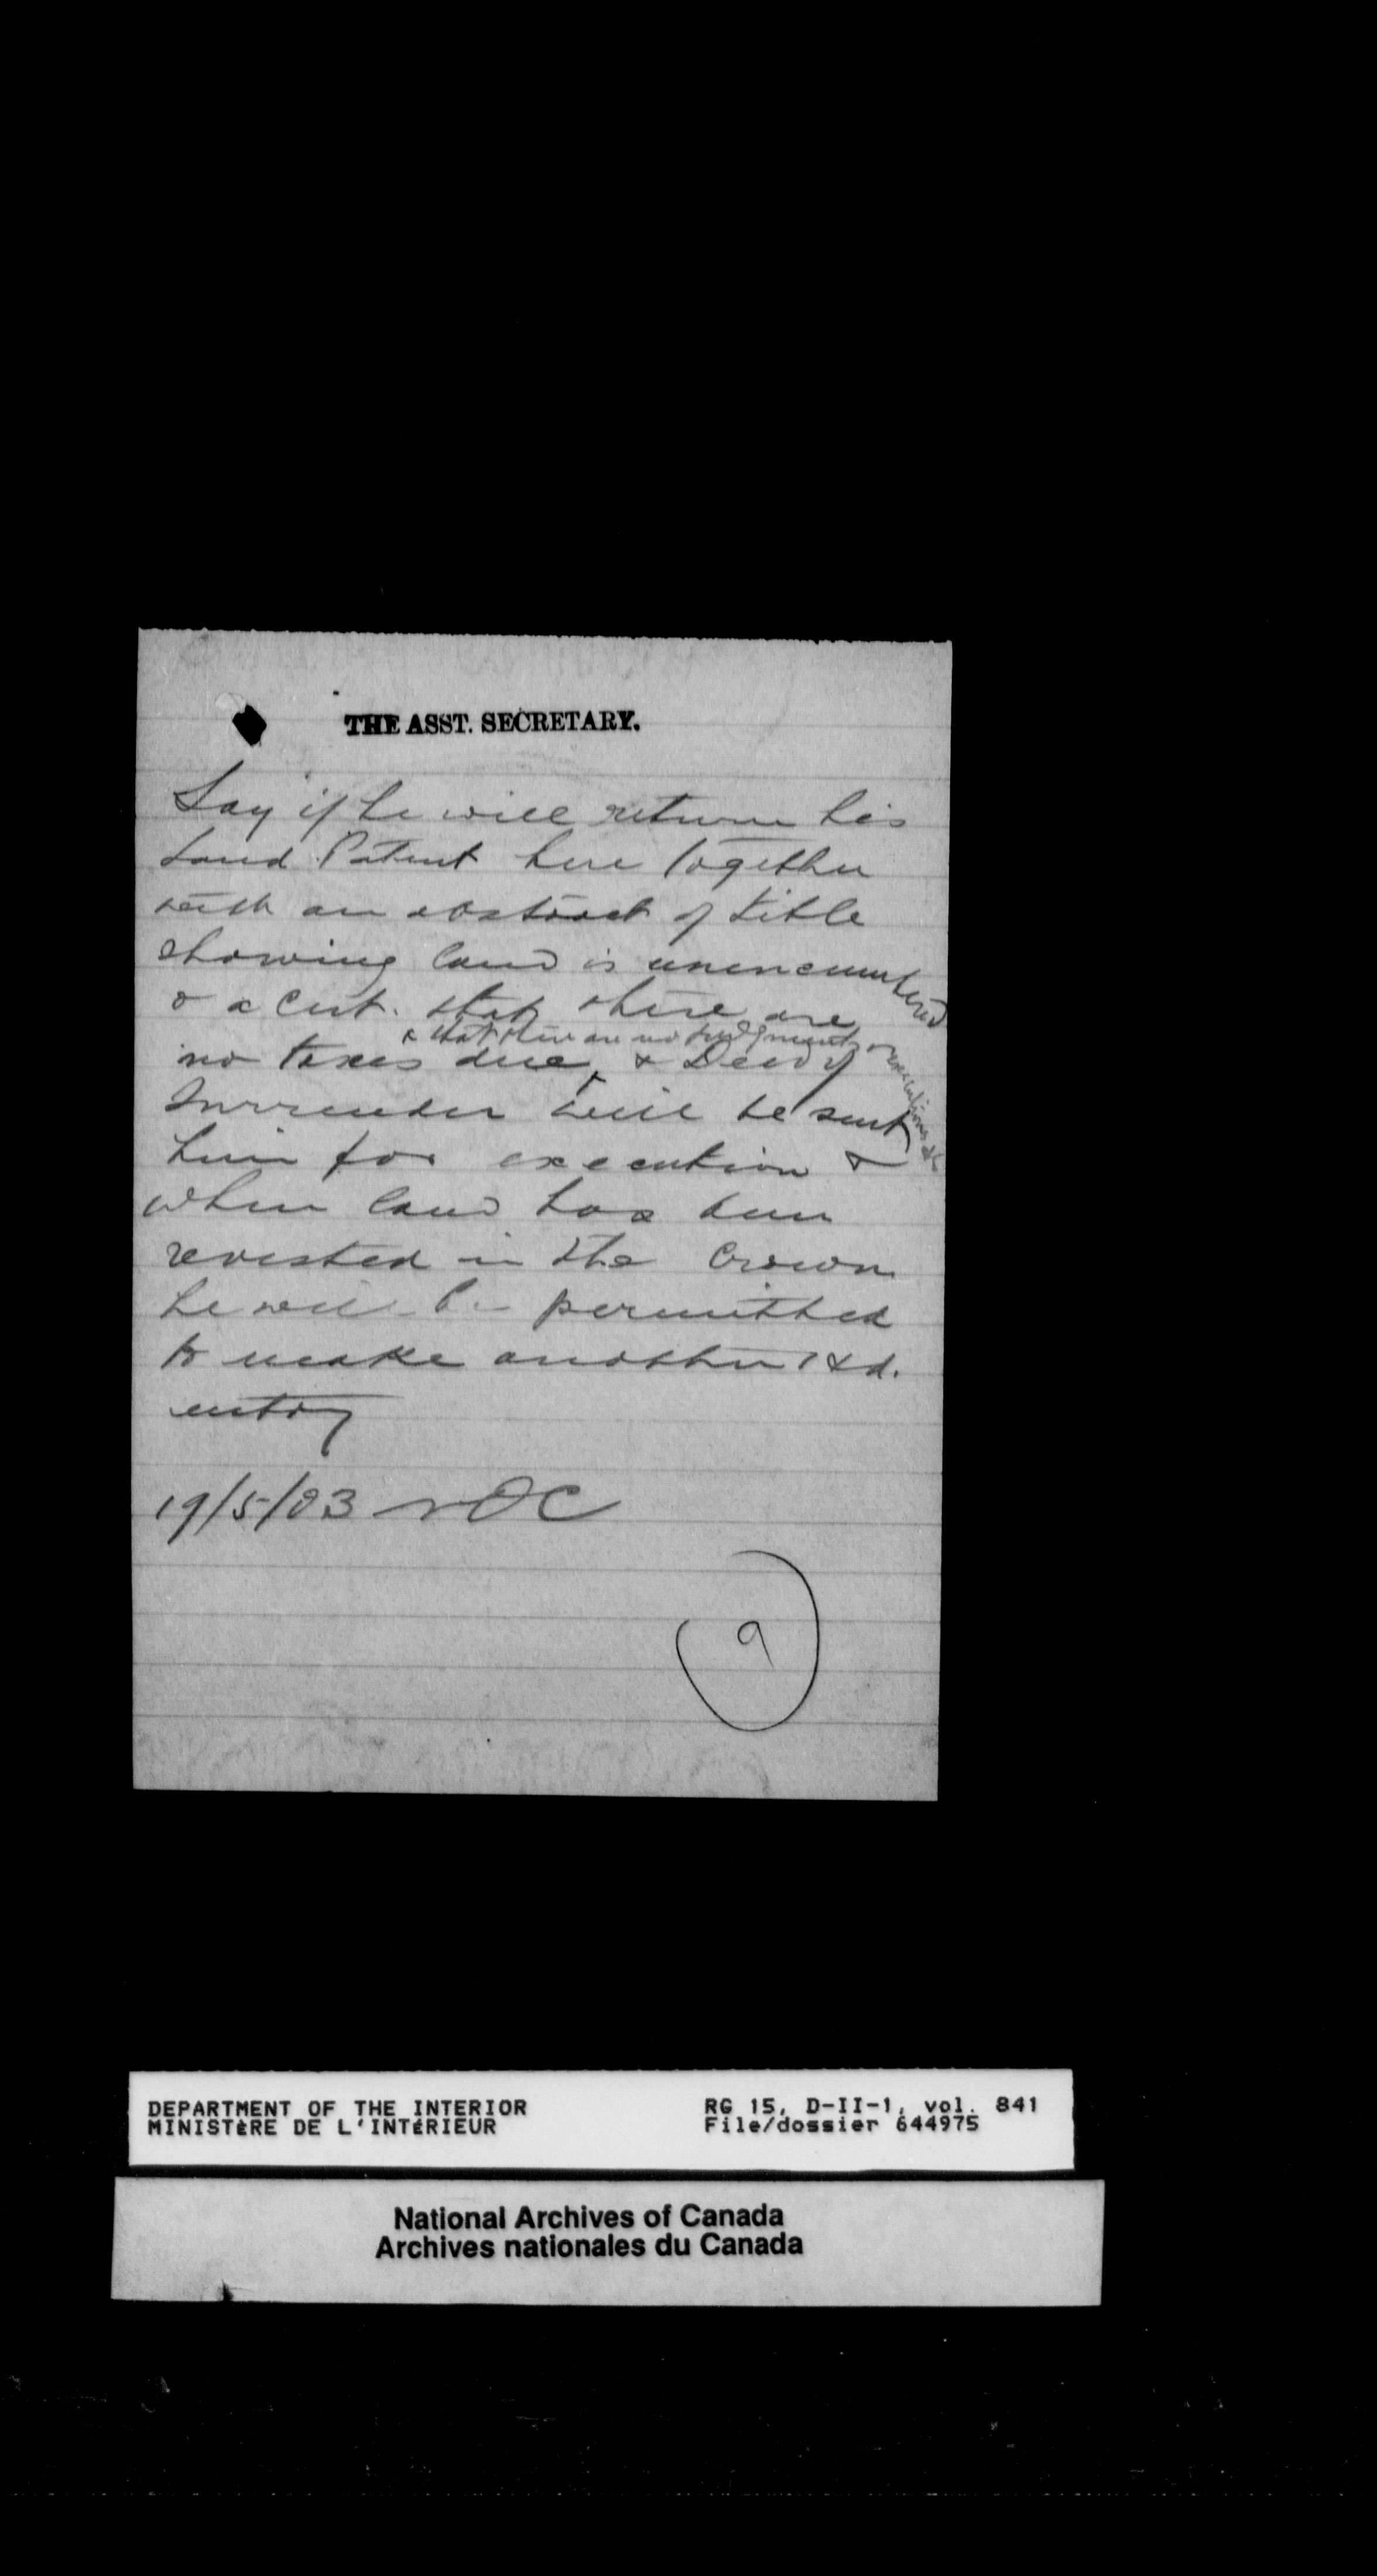 THE ASST. SECRETARY.
Say if he will return his
Land Patent here together
with an abstract of title
showing land is unencumbered
& a Cert. that there are
& that there are no judgments or executions &c
no taxes due, & Deed of
Surrender will be sent
him for execution &
when land has been
revested in the Crown
he will be permitted
to make another
entry
19/5/03
9
DEPARTMENT OF THE INTERIOR
MINISTÈRE DE L'INTÉRIEUR
RG 15, D-II-1, vol. 841
File/dossier 644975
National Archives of Canada
Archives nationales du Canada